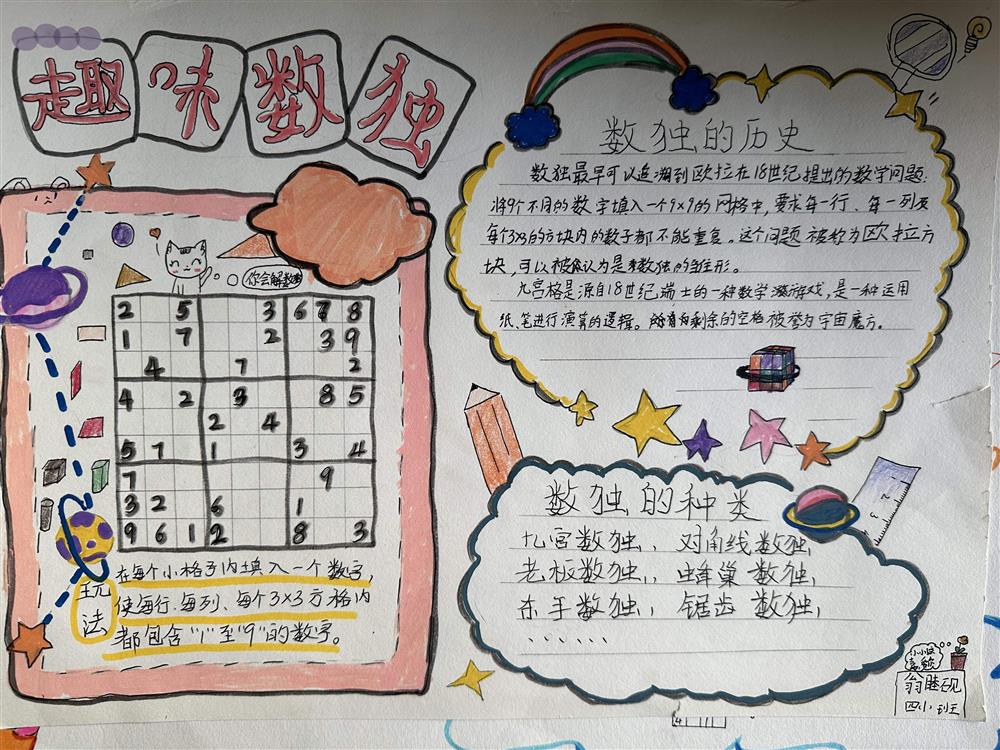 趣味数独
你会解数独
2 5 3 6 7 8
1 7 2 3 9
4 7 2
4 2 3 8 5
2 4
5 7 1 3 4
7 9
3 2 6 1
9 6 1 2 8 3
玩法
在每个小格子内填入一个数字,
使每行、每列、每个3×3方格内
都包含"1"至"9"的数字。
数独的历史
数独最早可以追溯到欧拉在18世纪提出的数学问题:
将9个不同的数字填入一个9×9的网格中,要求每一行、每一列及
每个3×3的方块内的数字都不能重复。这个问题被称为欧拉方
块,可以被认为是数独的雏形。
九宫格是源自18世纪瑞士的一种数学游戏,是一种运用
纸、笔进行演算的逻辑。剩余的空格被誉为宇宙魔方。
数独的种类
九宫数独、对角线数独、
老板数独、蜂巢数独、
东手数独、锯齿数独、
......
翁睦砚
四小班